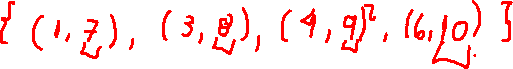 { (1, 7), (3, 8), (4, 9), (6, 10) }